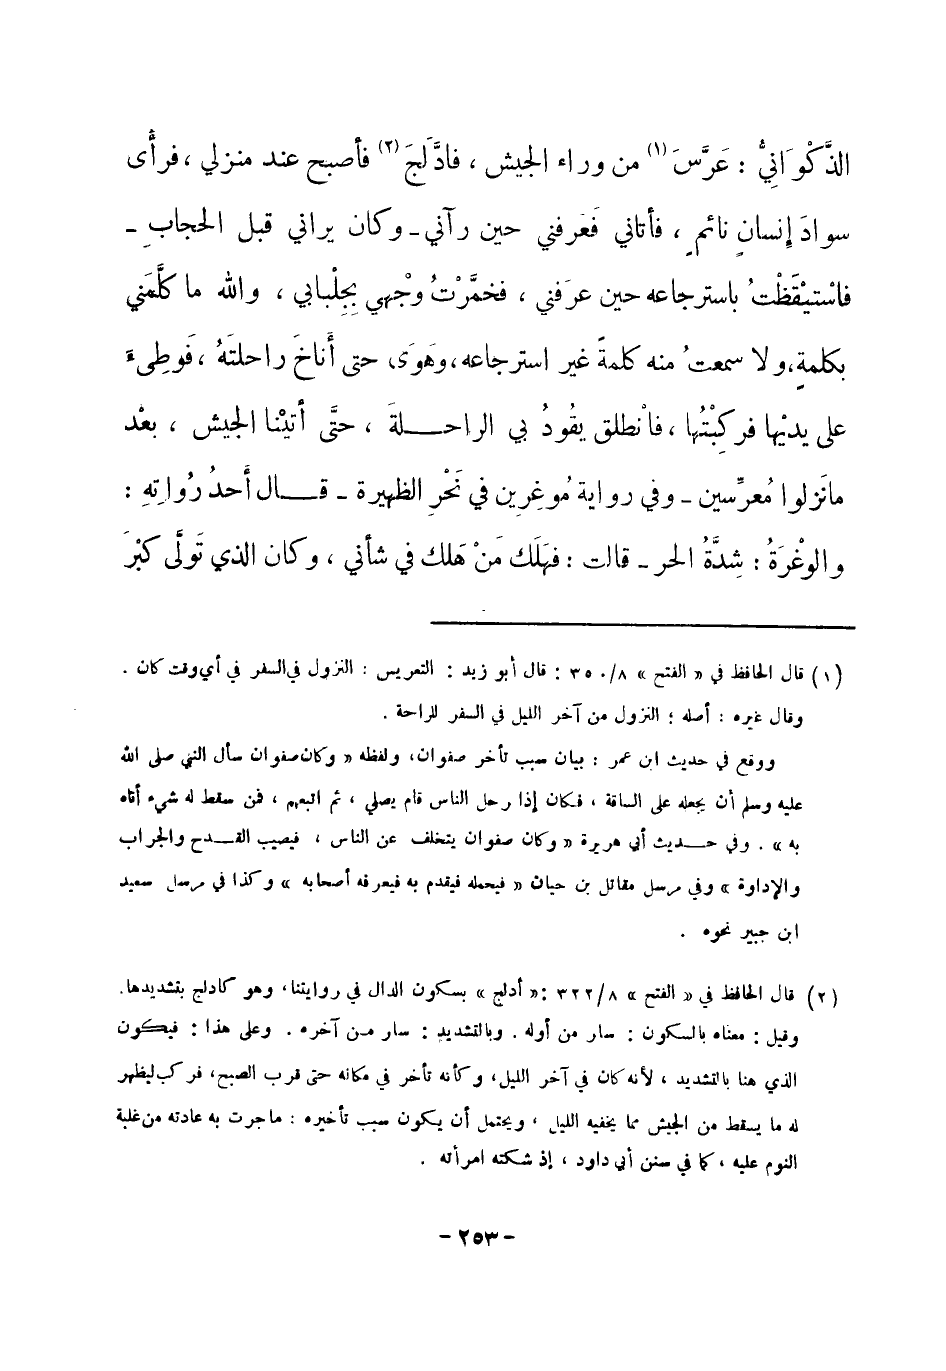 الذَّكْوَانِيُّ : عَرَّسَ (١) من وراء الجيش ، فادَّلَجَ (٢) فأصبح عند منزلي ، فرأَى
سوادَ إنسانٍ نائمٍ ، فأتاني فَعَرفني حين رآني ـ وكان يراني قبل الحجابِ ـ
فاسْتيْقَظْتُ باسترجاعه حين عرَفني ، فخمَّرْتُ وَجْهي بِجِلْبابي ، والله ما كلَّمَني
بكلمةٍ،ولا سمعتُ منه كلمةً غير استرجاعه،وهَوَى حتى أَناخَ راحلتَهُ ،فَوطِىءَ
على يديْها فركِبْتُها ،فانْطلق يقُودُ بي الراحــلةَ ، حتَّى أتيْنا الجيش ، بعْد
مانَزلوا مُعرِّسين ـ وفي رواية مُوغِرِين في نَحْرِ الظهيرة ـ قــال أَحدُ رُواتِهِ :
والوغْرَةُ : شِدَّةُ الحر ـ قالت : فهَلَكَ مَنْ هَلك في شأني ، وكان الذي تَولَّى كبْرَ
(١) قال الحافظ في « الفتح » ٣٥٠/٨ : قال أبو زيد : التعريس : النزول في السفر في أي وقت كان .
وقال غيره : أصله ؛ النزول من آخر الليل في السفر للراحة .
ووقع في حديث ابن عمر : بيان سبب تأخر صفوان، ولفظه « وكان صفوان سأل النبي صلى الله
عليه وسلم أن يجعله على الساقة ، فكان إذا رحل الناس قام يصلي ، ثم اتبعهم ، فمن سقط له شيء أتاه
به » . وفي حــديث أبي هريرة « وكان صفوان يتخلف عن الناس ، فيصيب القــدح والجراب
والإداوة » وفي مرسل مقاتل بن حيان « فيحمله فيقدم به فيعرفه أصحابه » وكذا في مرسل سعيد
ابن جبير نحوه .
(٢) قال الحافظ في « الفتح » ٣٢٢/٨ :« أدلج » بسكون الدال في روايتنا، وهو كادلج بتشديدها.
وقيل : معناه بالسكون : سار من أوله . وبالتشديد : سار مـن آخره . وعلى هذا : فيكون
الذي هنا بالتشديد ، لأنه كان في آخر الليل، وكأنه تأخر في مكانه حتى قرب الصبح، فركب ليظهر
له ما يسقط من الجيش مما يخفيه الليل ، ويحتمل أن يكون سبب تأخيره : ماجرت به عادته من غلبة
النوم عليه ، كما في سنن أبي داود ، إذ شكته امرأته .
- ٢٥٣ -